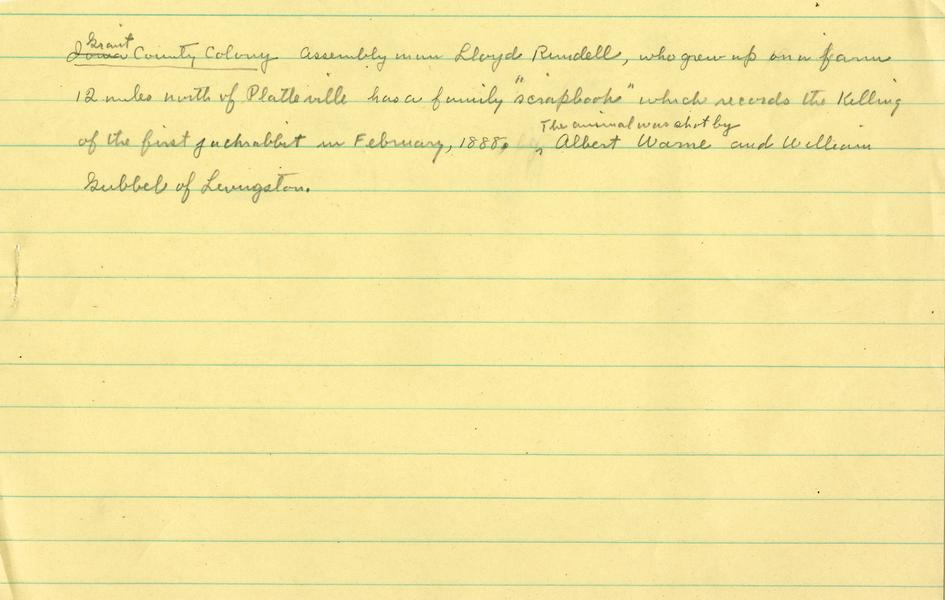 Grant
Iowa County Colony Assemblyman Lloyd Rundell, who grew up on a farm
12 miles north of Platteville has a family "scrapbook" which records the killing
The animal was shot by
of the first jackrabbit in February, 1888. Albert Warne and William
Gubbel of Livingston.